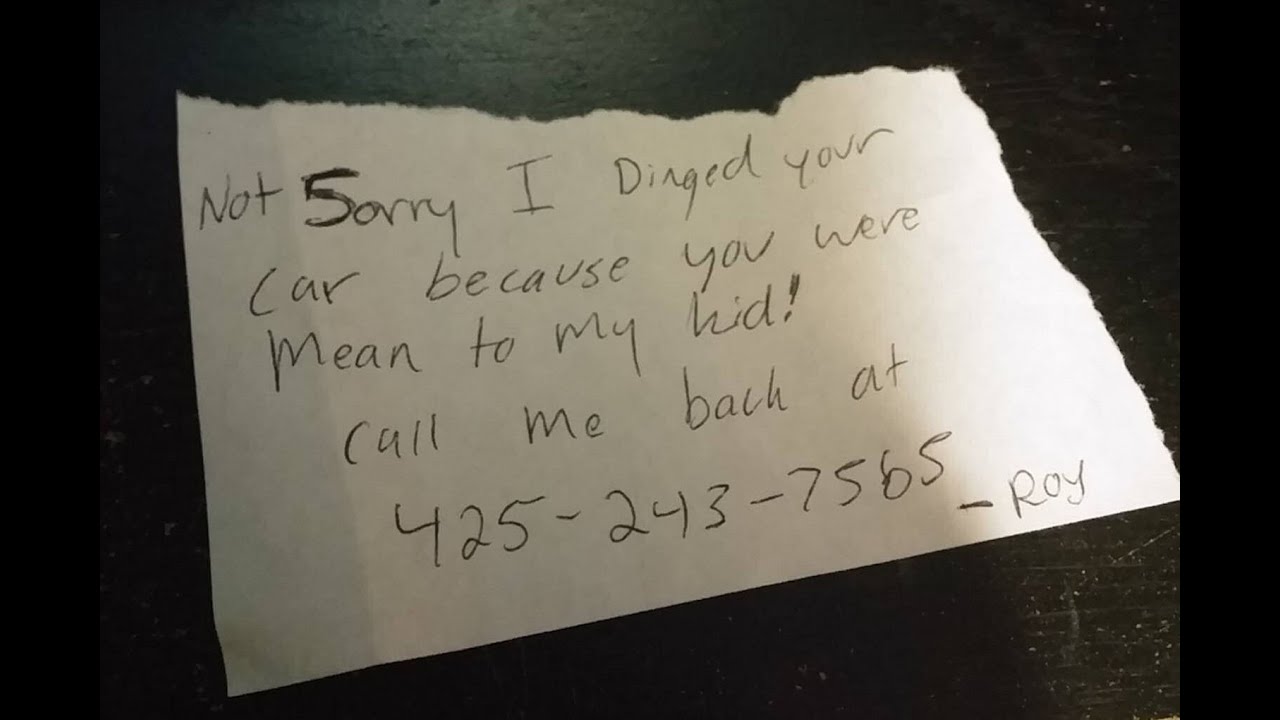 Not Sorry I Dinged your
Car because you were
Mean to my kid!
Call me back at
425-243-7565 -Roy